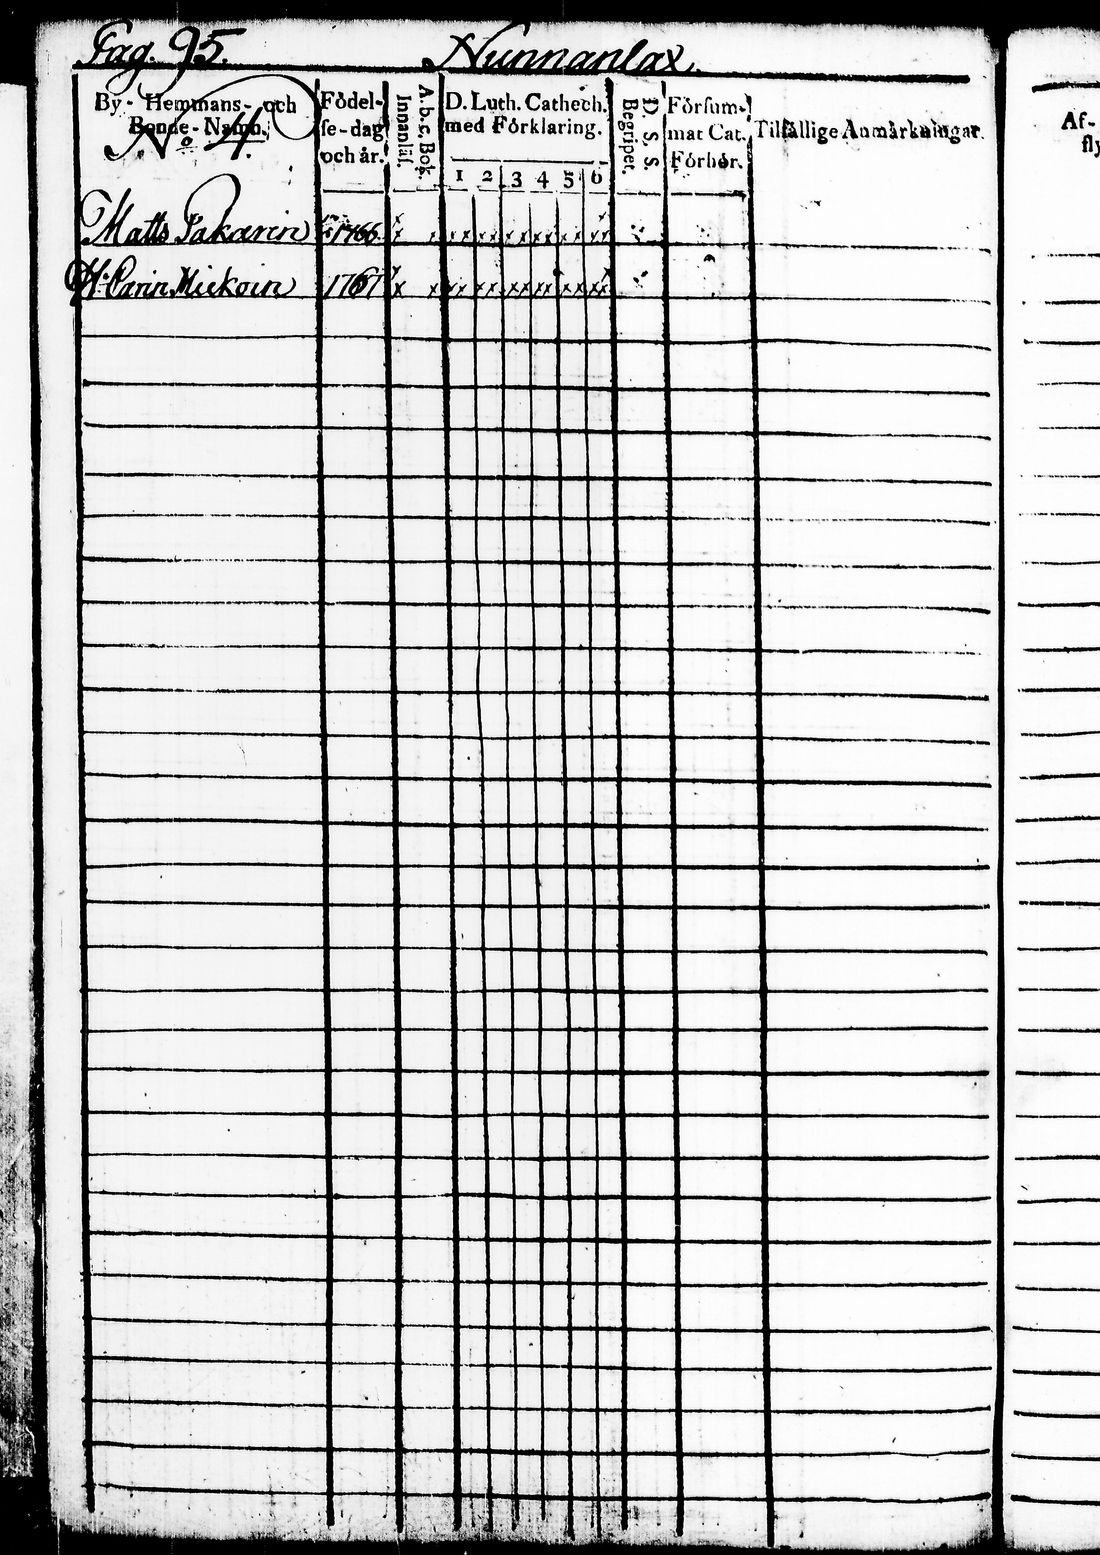 Pag. 95. Nunnanlax.
By- Hemmans- och Bonde-Namn.
Födel-se-dag och år.
A.b.c. Bok. Innanläs.
D. Luth. Cathech. med Förklaring.
1 2 3 4 5 6
D. S. S. Begripet.
Försum-mat Cat. Förhör.
Tilfällige Anmärkningar.
Af-
fly
No 4.
Matts Pakarin 1766 x x xx xx xx xx xx xx
H. Carin Mickoin 1767 x x xx xx xx xx xx xx